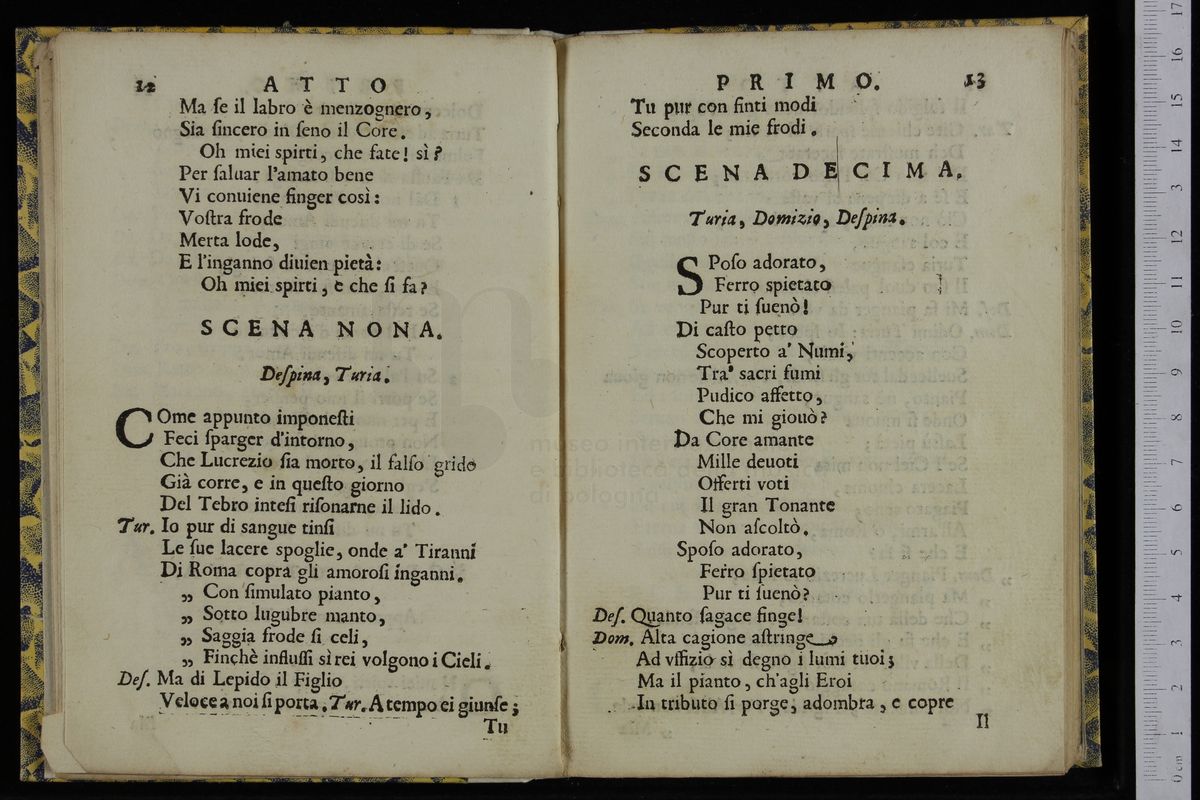 12 ATTO
Ma ſe il labro è menzognero,
Sia ſincero in ſeno il Core.
Oh miei spirti, che fate! sì?
Per ſaluar l'amato bene
Vi conuiene finger così:
Voſtra frode
Merta lode,
E l'inganno diuien pietà:
Oh miei spirti, e che ſi fa?
SCENA NONA.
Deſpina, Turia.
COme appunto imponeſti
Feci ſparger d'intorno,
Che Lucrezio ſia morto, il falſo grido
Già corre, e in queſto giorno
Del Tebro inteſi riſonarne il lido.
Tur. Io pur di sangue tinſi
Le ſue lacere spoglie, onde a' Tiranni
Di Roma copra gli amoroſi inganni.
„ Con ſimulato pianto,
„ Sotto lugubre manto,
„ Saggia frode ſi celi,
„ Finchè influſſi sì rei volgono i Cieli.
Deſ. Ma di Lepido il Figlio
Veloce a noi ſi porta. Tur. A tempo ei giunſe;
Tu
PRIMO. 13
Tu pur con finti modi
Seconda le mie frodi.
SCENA DECIMA.
Turia, Domizio, Deſpina.
SPoſo adorato,
Ferro spietato
Pur ti ſuenò!
Di caſto petto
Scoperto a' Numi,
Tra' sacri fumi
Pudico affetto,
Che mi giouò?
Da Core amante
Mille deuoti
Offerti voti
Il gran Tonante
Non aſcoltò.
Spoſo adorato,
Ferro ſpietato
Pur ti ſuenò?
Deſ. Quanto ſagace finge!
Dom. Alta cagione aſtringe
Ad vffizio sì degno i lumi tuoi;
Ma il pianto, ch'agli Eroi
In tributo ſi porge, adombra, e copre
Il
museo inter
e biblioteca
di bologna